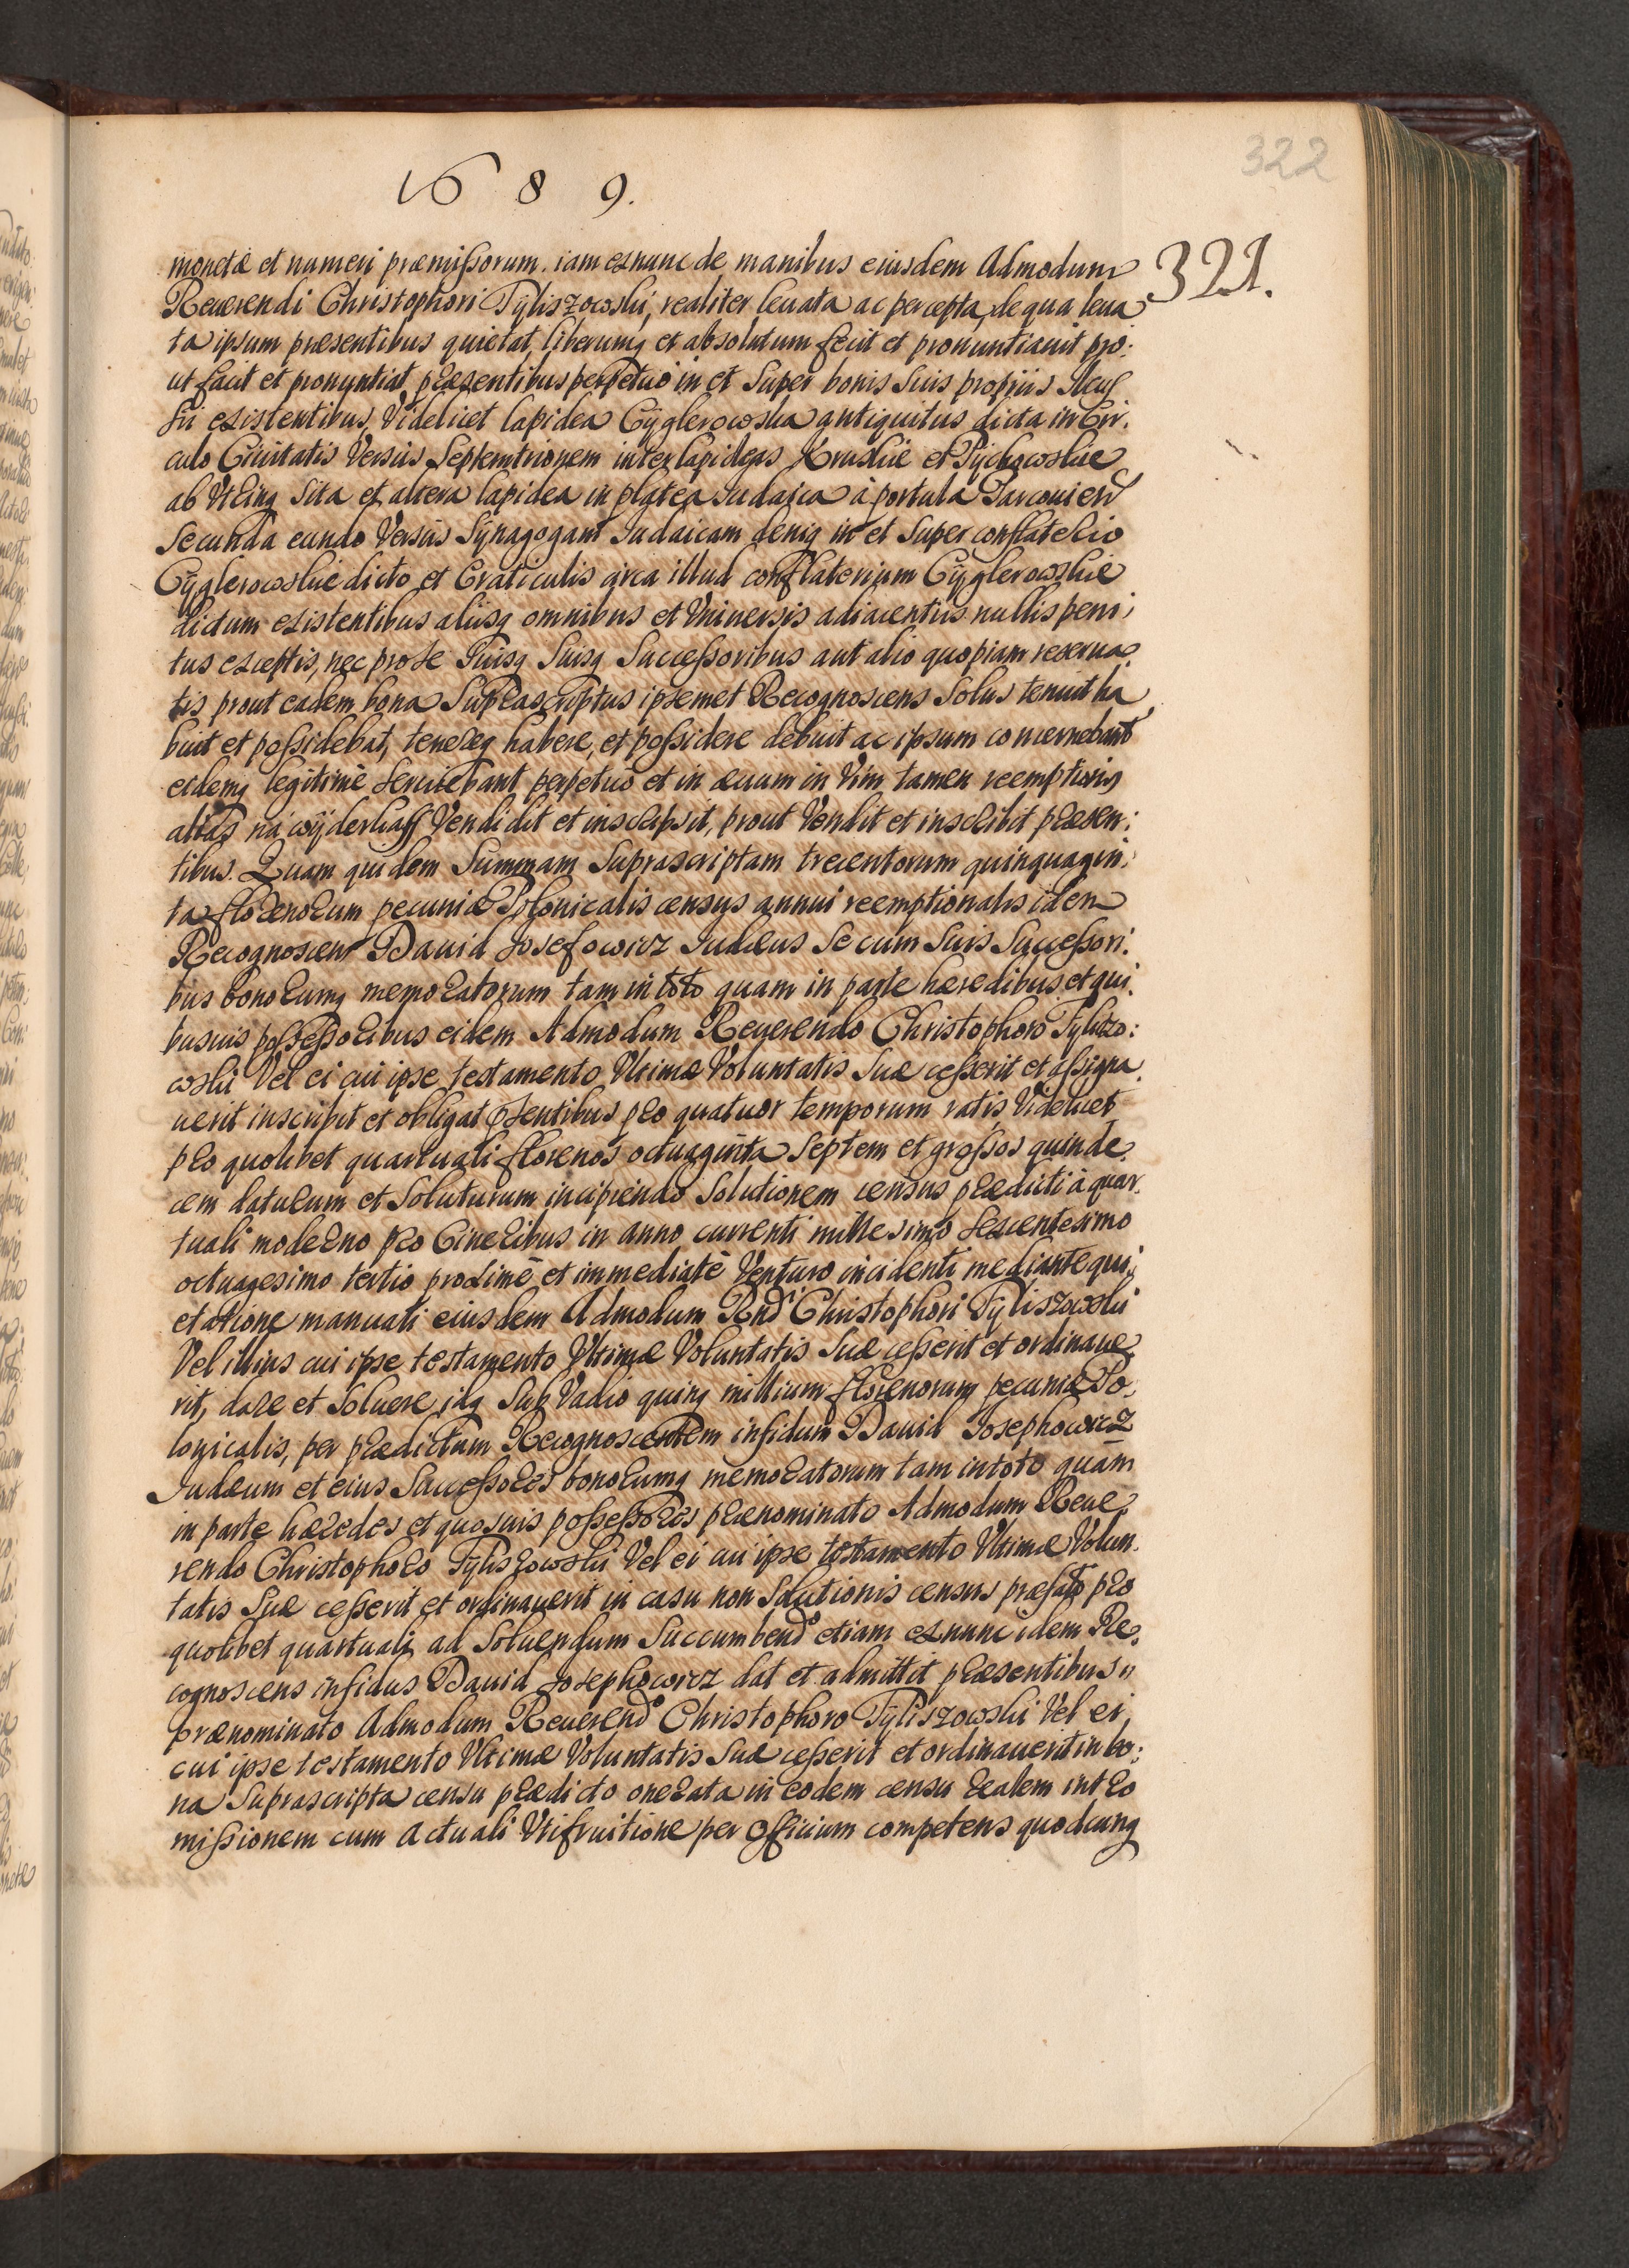 322
1689.
321.
monetæ et numeri præmissorum. iam exnunc de manibus eiusdem Admodum
Reuerendi Christophori Tyliszowski, realiter leuata ac percepta, de qua leua
ta ipsum præsentibus quietat, liberumq et absolutum fecit et pronuntiauit pro:
ut facit et pronuntiat præsentibus perpetuo in et super bonis suis propriis
sii existentibus, Videlicet lapidea Cyglerowska antiquitus dicta in Cir:
culo Ciuitatis Versus Septemtrionem inter lapideas Kruskie et Pychowskie
ab Vtrinq sita et altera lapidea in platea Judaica à portula
secunda eundo Versus Synagogam Judaicam deniq in et super conflatorio
Cyglerowskie dicto et Craticulis circa illud conflatorium Cyglerowskie
dictum existentibus aliisq omnibus et Vniuersis adiacentiis nullis peni:
tus exceptis, nec pro se Suisq Successoribus aut alio quopiam reserua:
tis prout eadem bona Suprascriptus ipsemet Recognoscens Solus tenuit ha
buit et possidebat, tenereq habere, et possidere debuit ac ipsum concernebant
eidemq legitimè seruiebant perpetuò et in æuum in Vim tamen reemptionis
alias na wÿderkaff Vendidit et inscripsit, prout Vendit et inscribit præsen:
tibus. Quam quidem Summam Suprascriptam trecentorum quinquagin:
ta florenorum pecuniæ Polonicalis census annui reemptionalis idem
Recognoscens Dauid Josefowicz Judæus se cum suis Successori:
bus bonorumq memoratorum tam in toto quam in parte hæredibus et qui:
busuis possessoribus eidem Admodum Reuerendo Christophoro Tyliszo:
wski Vel ei cui ipse testamento Vltimæ Voluntatis Suæ cesserit et assigna
uerit inscribit et obligat psentibus pro quatuor temporum ratis Videlicet
pro quolibet quartuali florenos octuaginta septem et grossos quinde:
cem daturum et Soluturum incipiendo Solutionem census prædicti à quar:
tuali moderno pro Cineribus in anno currenti millesimo sexcentesimo
octuagesimo tertio proximè et immediatè Venturo incidenti mediante qui:
etatione manuali eiusdem Admodum Rndi Christophori Tyliszowski
Vel illius cui ipse testamento Vltimæ Voluntatis Suæ cesserit et ordinaue
rit, dare et Soluere idq sub Vadio quinq millium florenorum pecuniæ Po:
lonicalis, per prædictum Recognoscentem infidum Dauid Josephowicz
Judæum et eius Successores bonorumq memoratorum tam in toto quàm
in parte hæredes et quosuis possessores prænominato Admodum Reue
rendo Christophoro Tyliszowski Vel ei cui ipse testamento Vltimæ Volun:
tatis Suæ cesserit et ordinauerit in casu non Solutionis census præfato pro
quolibet quartuali ad Soluendum Succumbendo etiam exnunc idem Re:
cognoscens infidus Dauid Josephowicz dat et admittit præsentibus
prænominato Admodum Reuerendo Christophoro Tyliszowski Vel ei,
cui ipse testamento Vltimæ Voluntatis Suæ cesserit et ordinauerit in bo:
na Suprascripta censu prædicto onerata in eodem censu realem intro
missionem cum actuali Vtifruitione per officium competens quodcunq